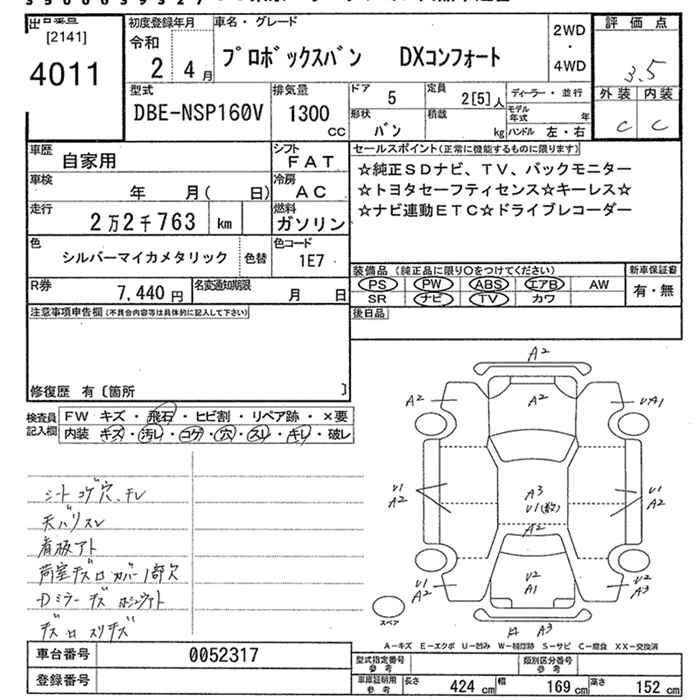 出品番号
[2141]
4011
初度登録年月
令和
2 4月
車名・グレード
プロボックスバン DXコンフォート
2WD
・
4WD
評価点
3.5
外装 内装
C C
型式
DBE-NSP160V
排気量
1300
CC
ドア
5
定員
2[5]人
形状
バン
積載
kg
ディーラー・並行
モデル年式 年
ハンドル 左・右
車歴
自家用
シフト
FAT
車検
年 月( 日)
冷房
AC
走行
2万2千763 km
燃料
ガソリン
色
シルバーマイカメタリック
色替
色コード
1E7
R券
7,440円
名変通知期限
月 日
セールスポイント(正常に機能するものに限ります)
☆純正SDナビ、TV、バックモニター
☆トヨタセーフティセンス☆キーレス☆
☆ナビ連動ETC☆ドライブレコーダー
装備品(純正品に限り○をつけてください)
新車保証書
PS PW ABS エアB AW
SR ナビ TV カワ
有・無
後日品
注意事項申告欄(不具合内容等は具体的に記入して下さい)
修復歴 有〔箇所 〕
検査員記入欄
FW キズ・飛石・ヒビ割・リペア跡・×要
内装 キズ・汚レ・コゲ・穴・スレ・キレ・破レ
シート コゲ穴、チレ
天バリスレ
看板アト
荷室キズ ロ カバー1部欠
キズ ロ スリキズ
A2
A2
A2
UA1
U1
A2
A3
U1(数)
A2
U1
A2
U1
A2
U2
A1
U2
A3
A3
スペア
A－キズ E－エクボ U－凹み W－補修跡 S－サビ C－腐食 XX－交換済
車台番号
0052317
登録番号
型式指定番号
参考
類別区分番号
参考
車庫証明用
参考
長さ 424 cm
幅 169 cm
高さ 152 cm